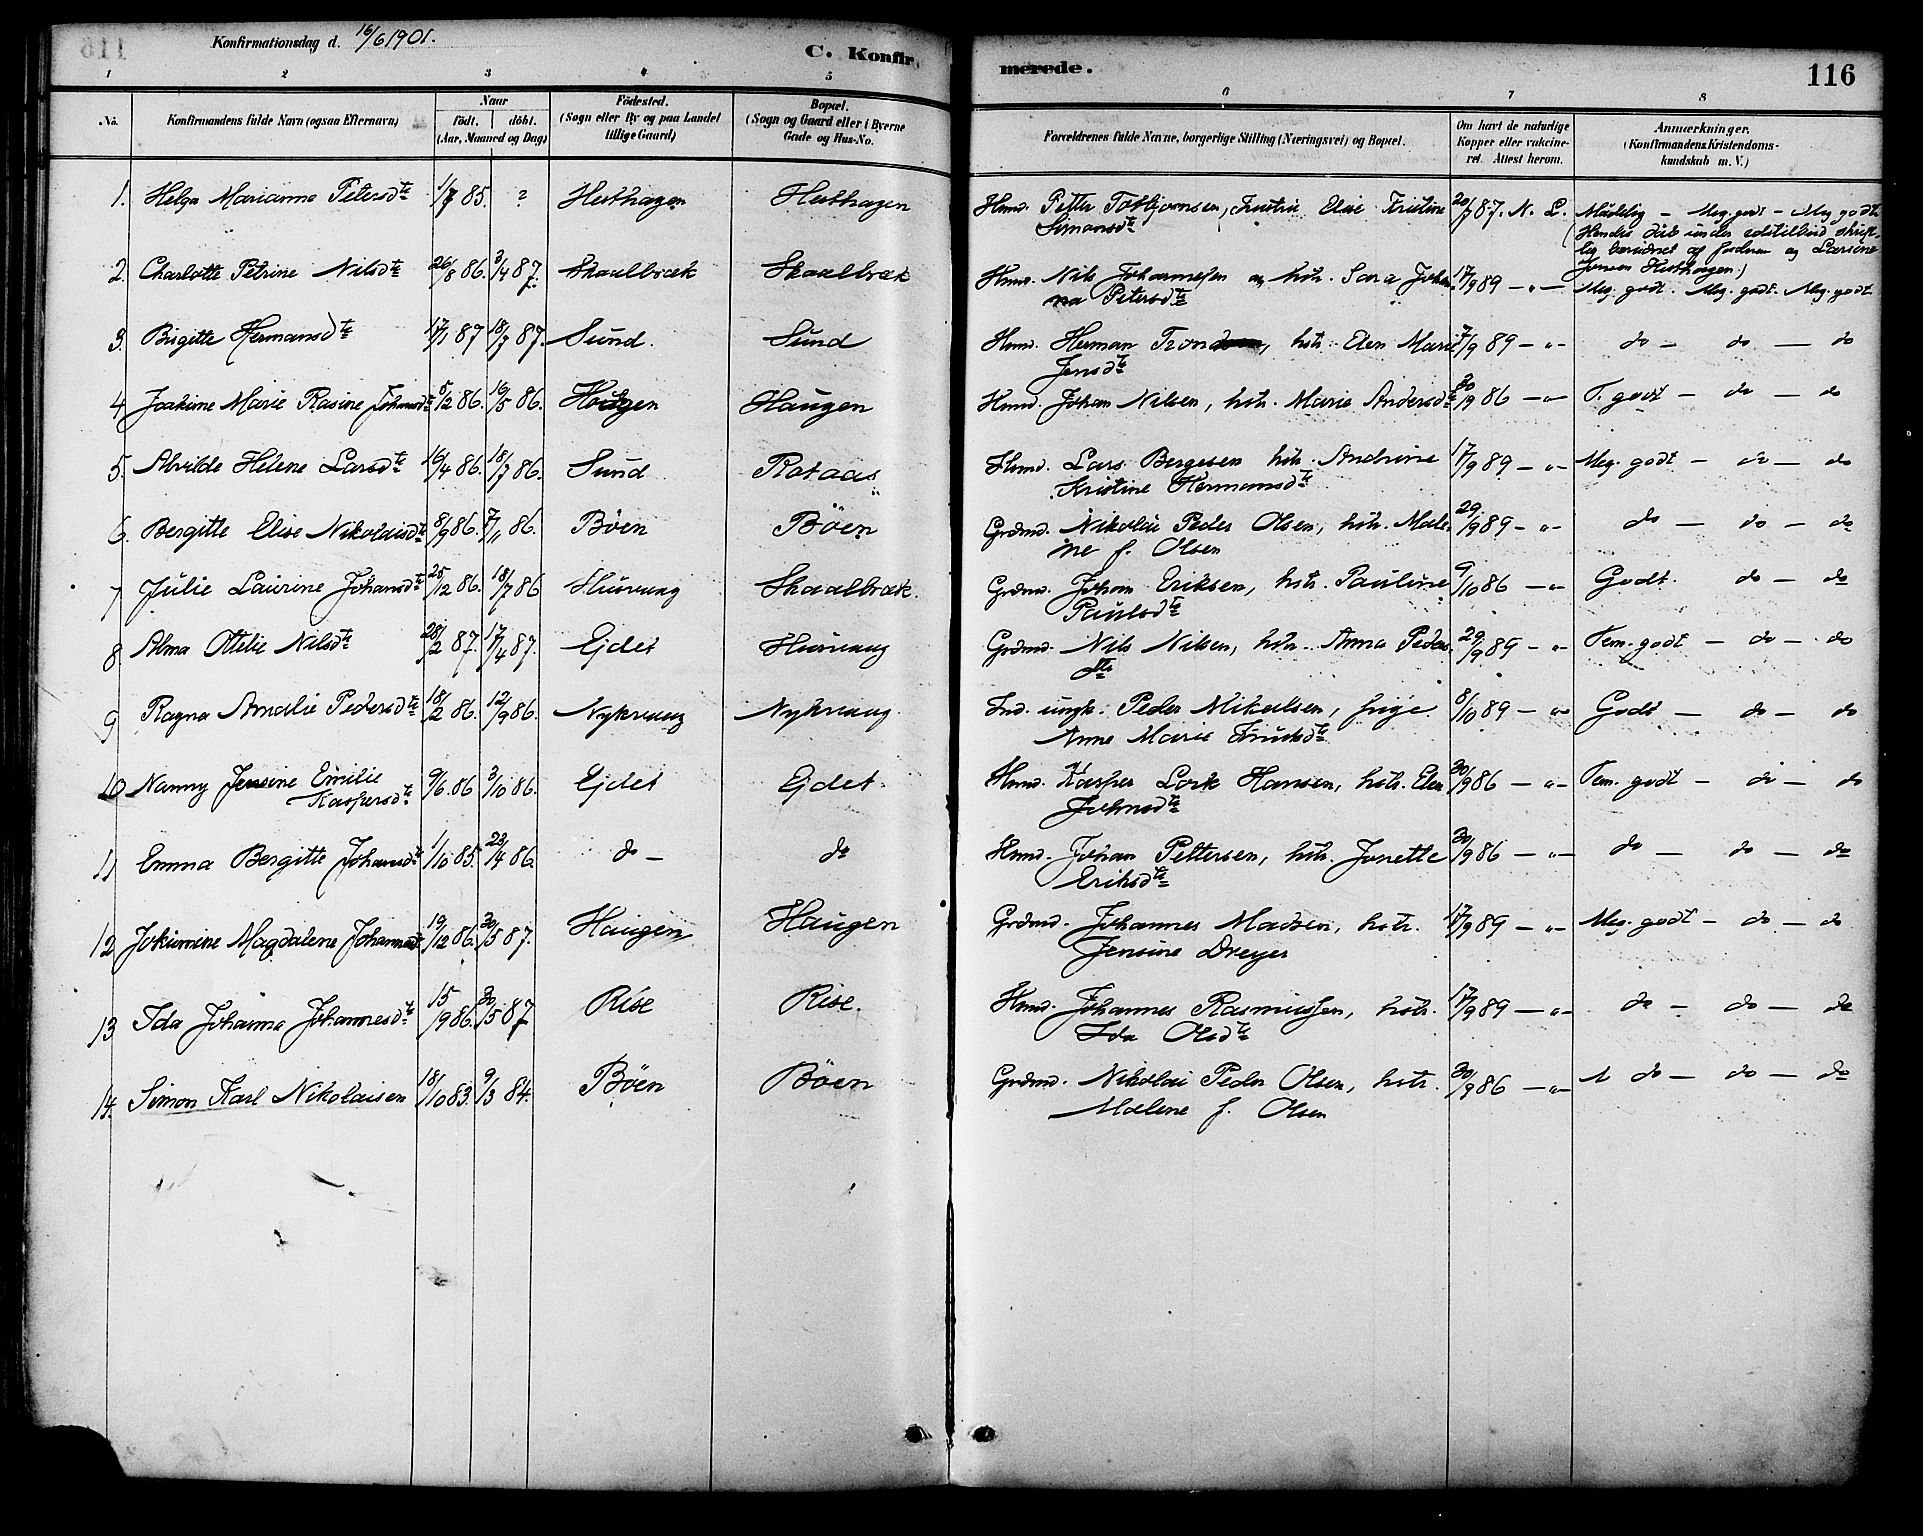 Konfirmationsdag d. 16/6 1901.
C. Konfirmerede.
116
1 2 3 4 5 6 7 8
No.
Konfirmandens fulde Navn (ogsaa Efternavn)
Naar
födt. döbt.
(Aar, Maaned og Dag)
Födested.
(Sogn eller By og paa Landet
tillige Gaard)
Bopæl.
(Sogn og Gaard eller i Byerne
Gade og Hus-No.
Forældrenes fulde Navne, borgerlige Stilling (Næringsvei) og Bopæl.
Om havt de naturlige
Kopper eller vakcine-
ret. Attest herom.
Anmærkninger.
(Konfirmandens Kristendoms-
kundskab m. V.)
1. Helga Marianna Petersdtr 1/7 85. ? Hesthagen Hesthagen Hmd. Petter Torbjornsen, Hustru Elise Kristine 20/7 87. N. L. Mådelig - Meg. godt - Meg godt
Simonsdtr
2. Charlotte Petrine Nilsdtr 26/8 86. 3/4 87. Skaalbræk Skaalbræk Hmd. Nils Johannessen og hstr. Sara Johan- 17/9 89 - " - Meg. godt. Meg. godt. Meg. godt
na Petersdtr
3. Birgitte Hermansdtr 17/1 87 18/7 87. Sund. Sund Hmd. Herman Tron, hstr. Elen Marie 17/9 89 - " - do - do - do
Jensdtr
4 Joakime Marie Rasine Johansdtr 5/12 86. 16/5 86. Haugen Haugen Hmd. Johan Nilsen, hstr. Marie Andersdtr 30/9 86 - " - T. godt - do - do
5. Alvilde Helene Larsdtr 16/4 86. 18/7 86. Sund Rotaas Hmd. Lars Bergesen hstr. Andrine 17/9 89 - " - Meg. godt - do - do
Kristine Hermansdtr
6. Bergitte Elise Nikolaisdtr 8/9 86. 7/11 86. Böen Böen Grdmd. Nikolai Peder Olsen, hstr. Male- 29/9 89 - " - do - do - do
ne f. Olsen
7 Julie Laurine Johansdtr 25/12 86. 18/7 86 Husvang Skaalbræk. Grdmd. Johan Eriksen, hstr. Pauline 9/10 86 - " - Godt. do - do
Paulsdtr
8. Alma Otelie Nilsdtr 28/2 87. 17/4 87. Ejdet Husvang Grdmd. Nils Nilsen, hstr. Anna Peders- 29/9 89 - " - Tem. godt - do - do
dtr
9 Ragna Amalie Pedersdtr 18/2 86. 12/9 86. Nykvaag Nykvaag. Ind. ungk. Peder Mikalsen, pige 8/10 89 - " - Godt - do - do
Anne Marie Knutsdtr
10 Nanny Jensine Emilie 9/6. 86 3/10 86. Ejdet Ejdet. Hmd. Kasper Lork Hansen, hstr. Elen 30/9 86 - " - Tem. godt - do - do
Kaspersdtr. Johnsdtr
11 Emma Bergitte Johansdtr 1/10 85. 23/4 86. do - do Hmd. Johan Pettersen, hstr. Jonette 30/9 86 - " - do - do - do
Eriksdtr
12 Jokumine Magdalene Johannesdtr 19/12 86. 30/5 87. Haugen Haugen Grdmd. Johannes Madsen, hstr. 17/9 89 - " - Meg. godt - do - do
Jensine Dreyer
13 Ida Johanna Johannesdtr 15/9 86. 30/5 87 Rise Rise. Hmd. Johannes Rasmussen, hstr. 17/9 89 - " - do - do - do
Ida Olsdtr
14. Simon Karl Nikolaisen 18/10 83. 9/3 84. Böen Böen Grdmd. Nikolai Peder Olsen, hstr. 30/9 86 - " - do - do - do
Malene f. Olsen